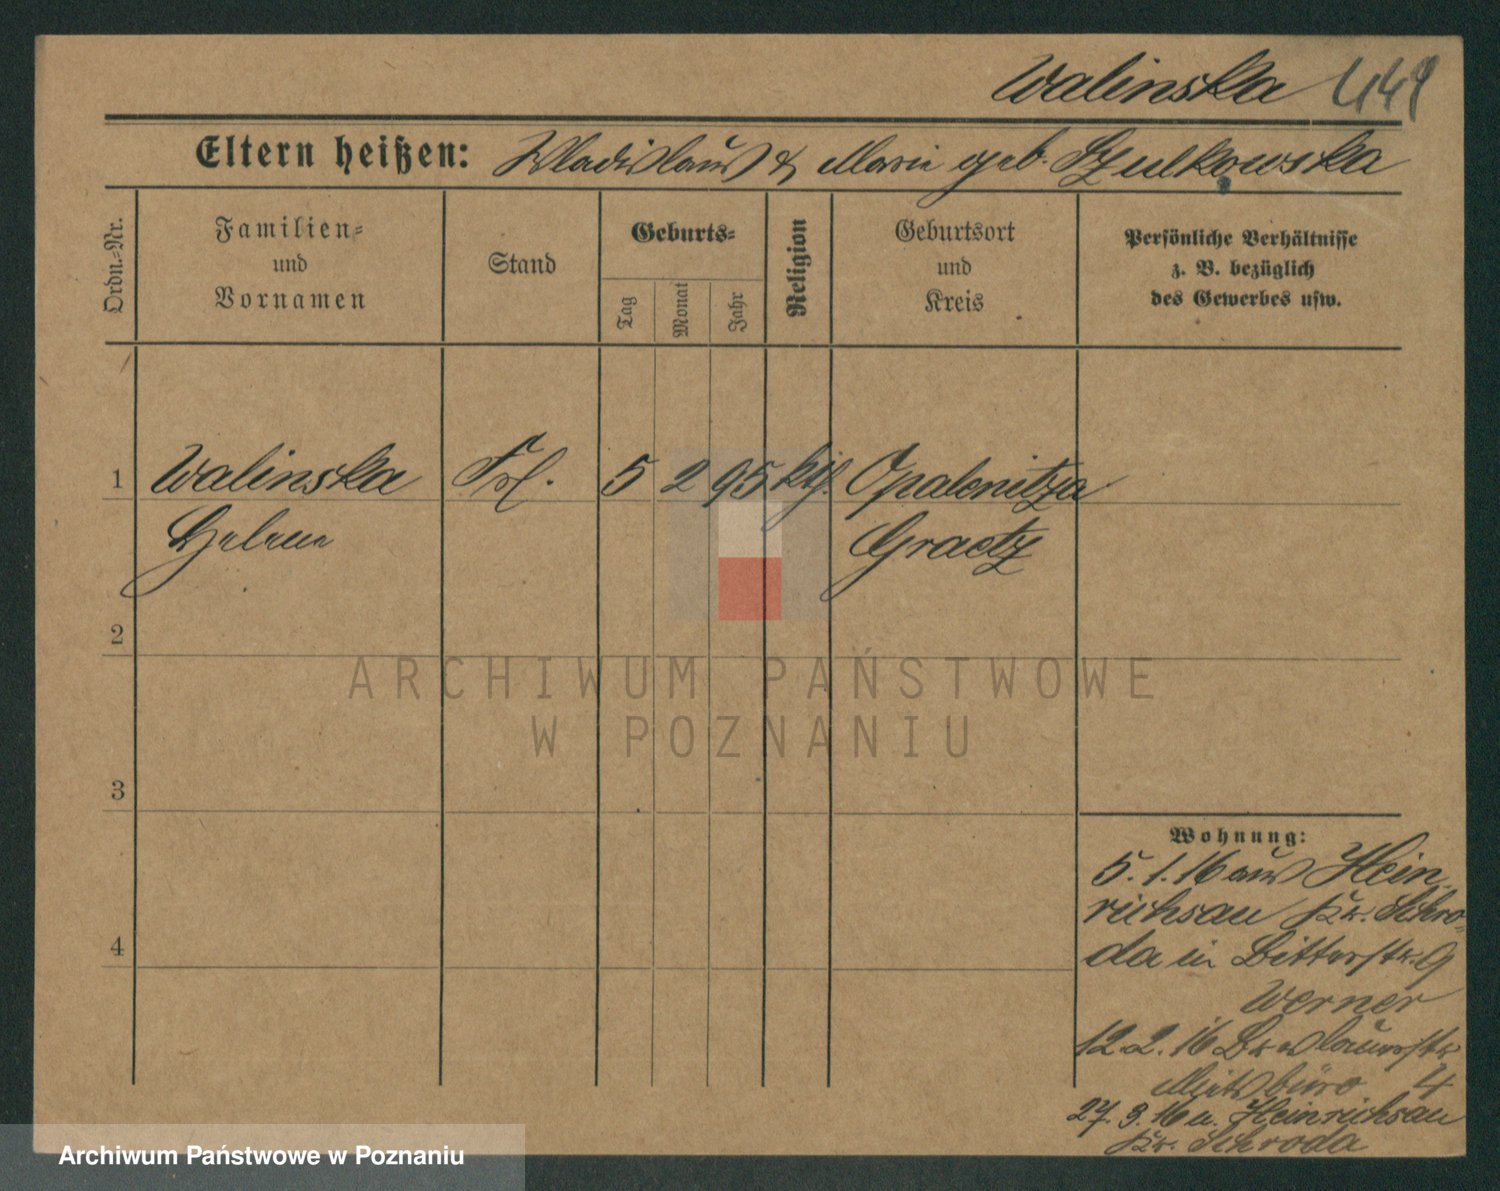 Walinska 449
Eltern heißen: Wladislaus & Marie geb. Szulkowska
Ordn.-Nr.
Familien-
und
Vornamen
Stand
Geburts-
Tag
Monat
Jahr
Religion
Geburtsort
und
Kreis
Persönliche Verhältnisse
z. B. bezüglich
des Gewerbes usw.
1 Walinska Frl. 5 2 95 kth. Opalenitza
Helene Graetz
2
ARCHIWUM PAŃSTWOWE
W POZNANIU
3
Wohnung:
5. 1. 16 aus Hein-
richsau Kr. Schro-
4
da in Ritterstr. 9
Werner
12. 2. 16
Mietsbüro 4
27. 3. 16 n. Heinrichsau
Kr. Schroda
Archiwum Państwowe w Poznaniu